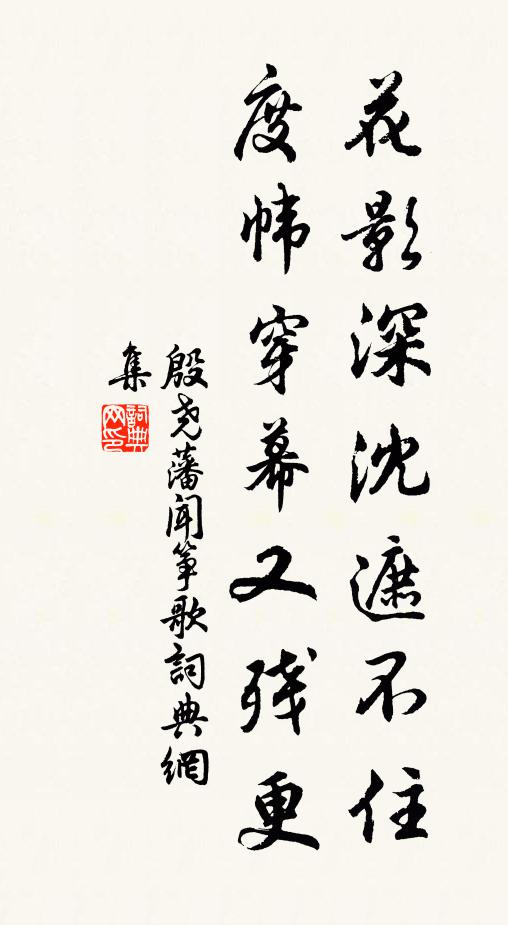 花影深沈遮不住
度帏穿幕又残更
殷尧藩闻筝歌詞典網
集
詞典网印